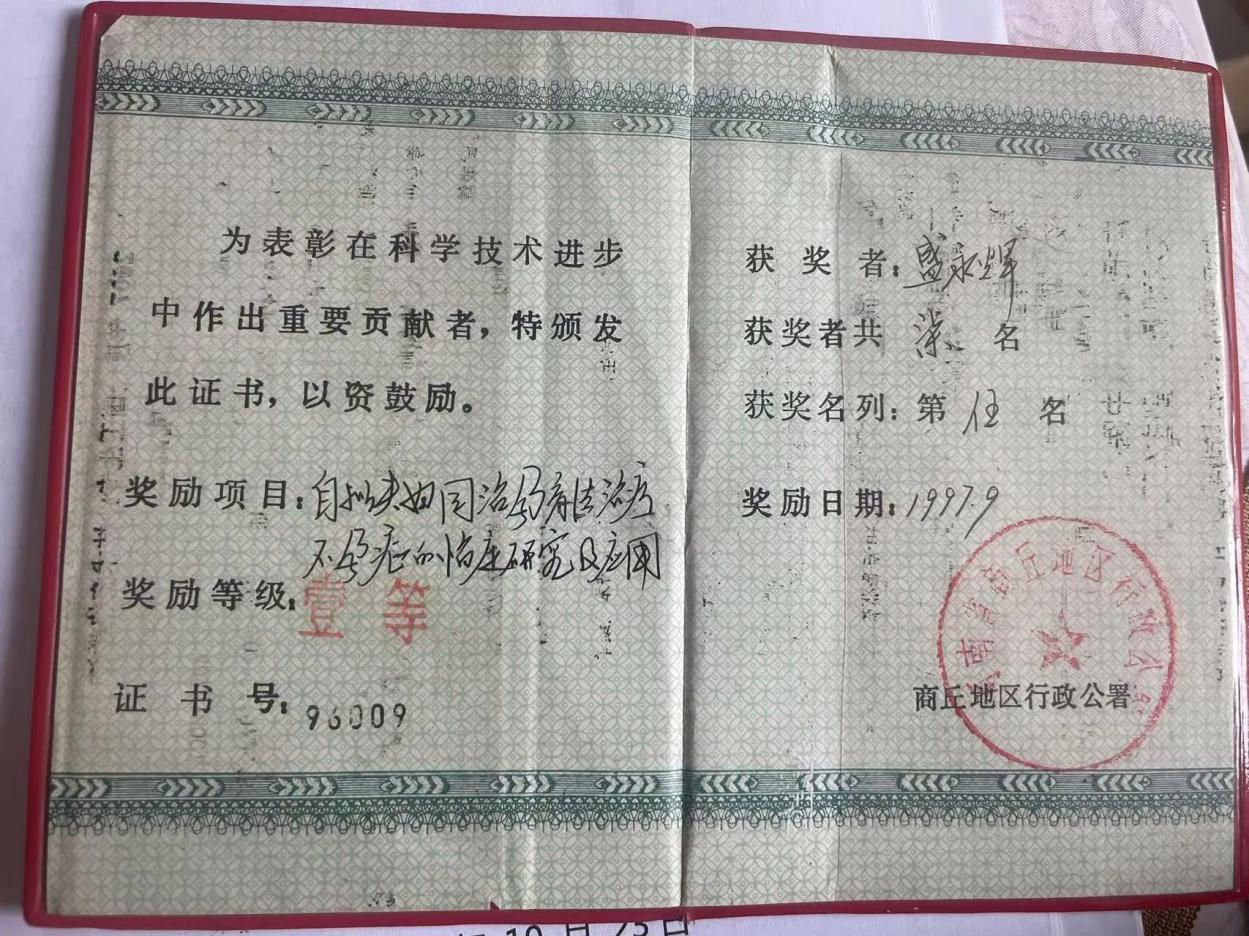 为表彰在科学技术进步
中作出重要贡献者，特颁发
此证书，以资鼓励。
奖励项目：自拟夫妇同治孕育法治疗
不孕症的临床研究及应用
奖励等级：壹等
证书号：96009
获奖者：盛永辉
获奖者共 柒 名
获奖名列：第 伍 名
奖励日期：1997.9
南省商丘地区行政公署
商丘地区行政公署
10月23日